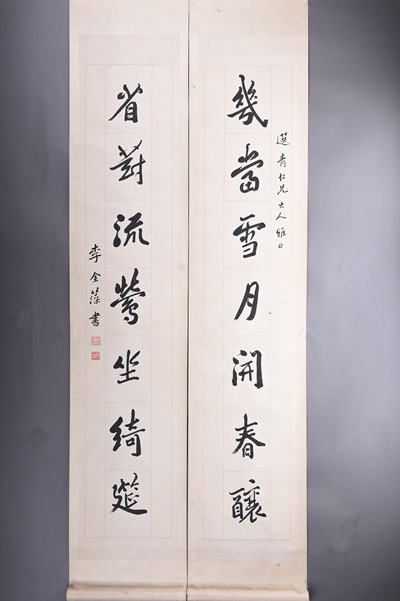 選青仁兄大人雅曰
幾當雪月開春釀
省對流鶯坐綺筵
李金藻書